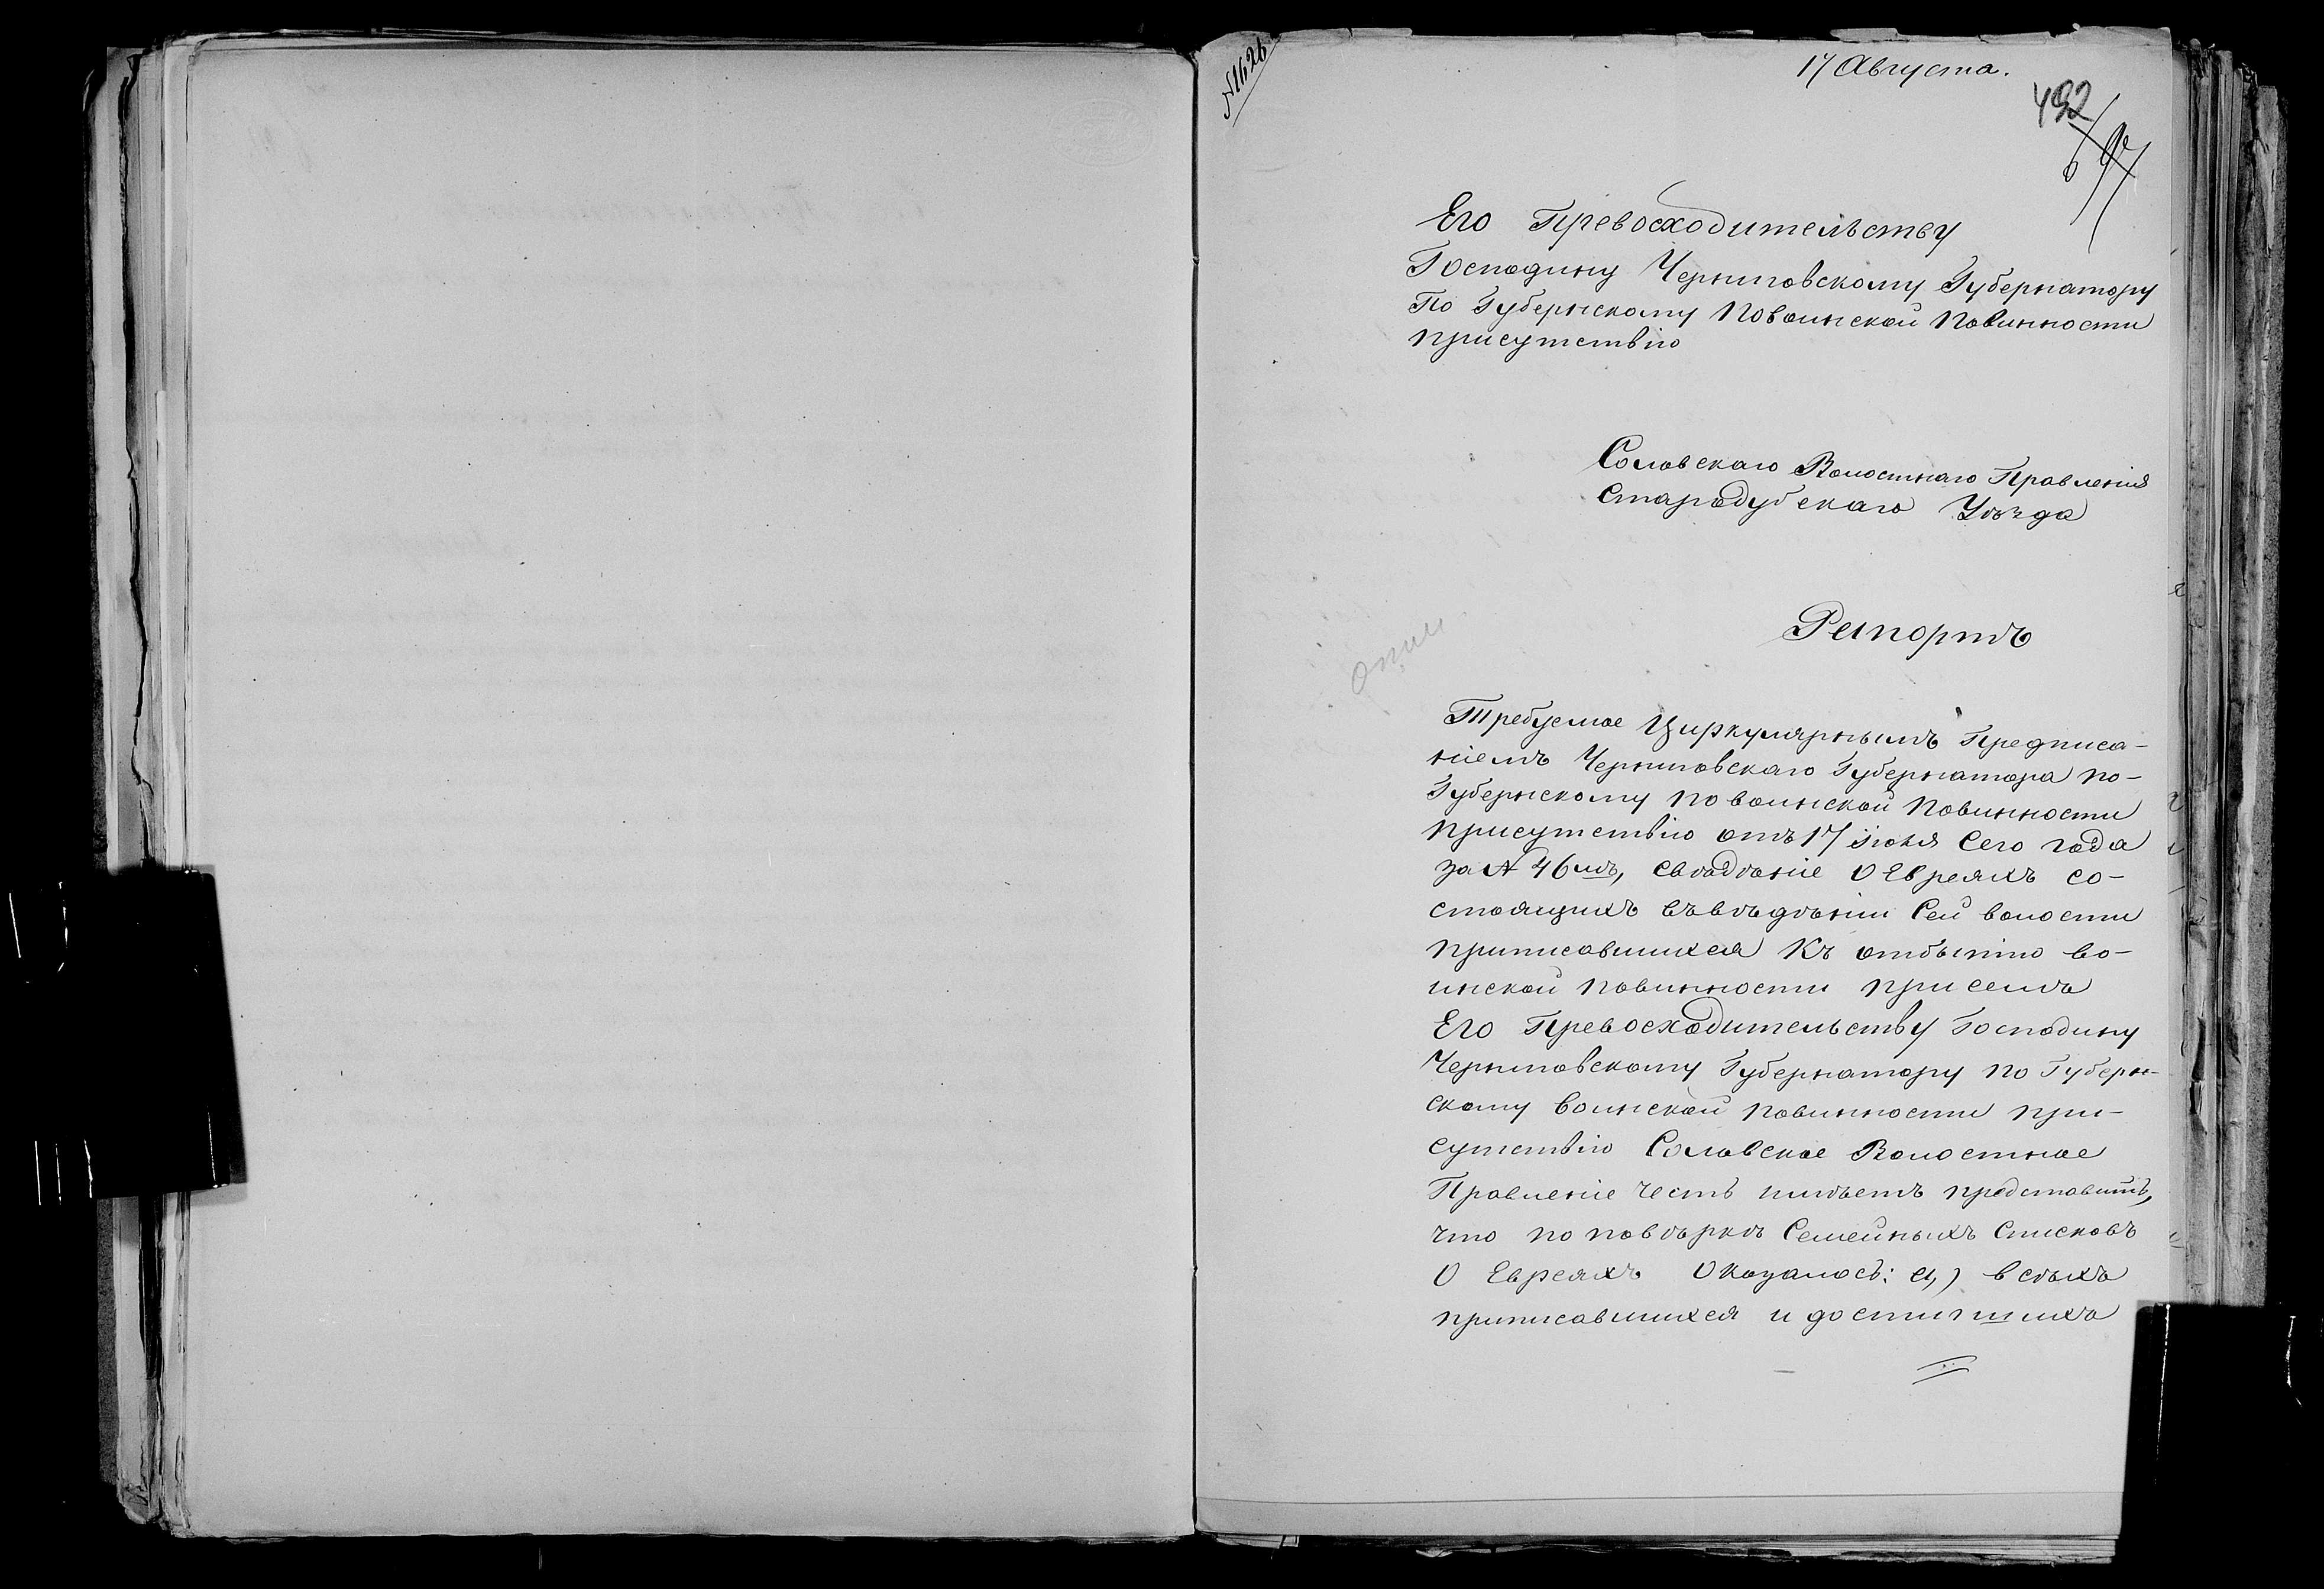 № 1626
17 Августа.
492
Его Превосходительству
Господину Черниговскому Губернатору
По Губернскому Повоинской Повинности
присутствію
Соловскаго Волостнаго Правленія
Стародубскаго Уѣзда
Рапортъ
Требуемое Циркулярнымъ Предписа-
ніемъ Черниговскаго Губернатора по-
Губернскому по воинской Повинности
присутствію отъ 17 іюня Сего года
за № 46мъ, свѣдѣніе О Евреяхъ со-
стоящихъ въвѣдѣніи Сей волости
приписавшихся Къ отбытію во-
инской повинности при семъ
Его Превосходительству Господину
Черниговскому Губернатору по Губерн-
скому воинской повинности при-
сутствію Соловское Волостное
Правленіе честь имѣетъ представить,
что по повѣркѣ Семейныхъ Списковъ
О Евреяхъ Оказалось: а,) всѣхъ
приписавшихся и достигшихъ